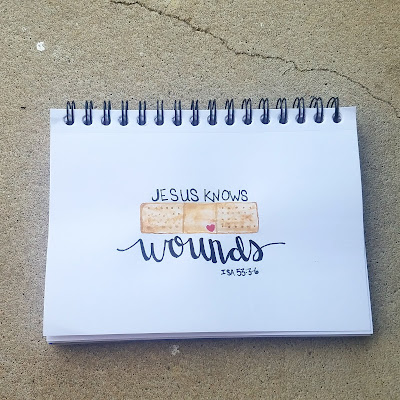 JESUS KNOWS
wounds
ISA 53:3-6